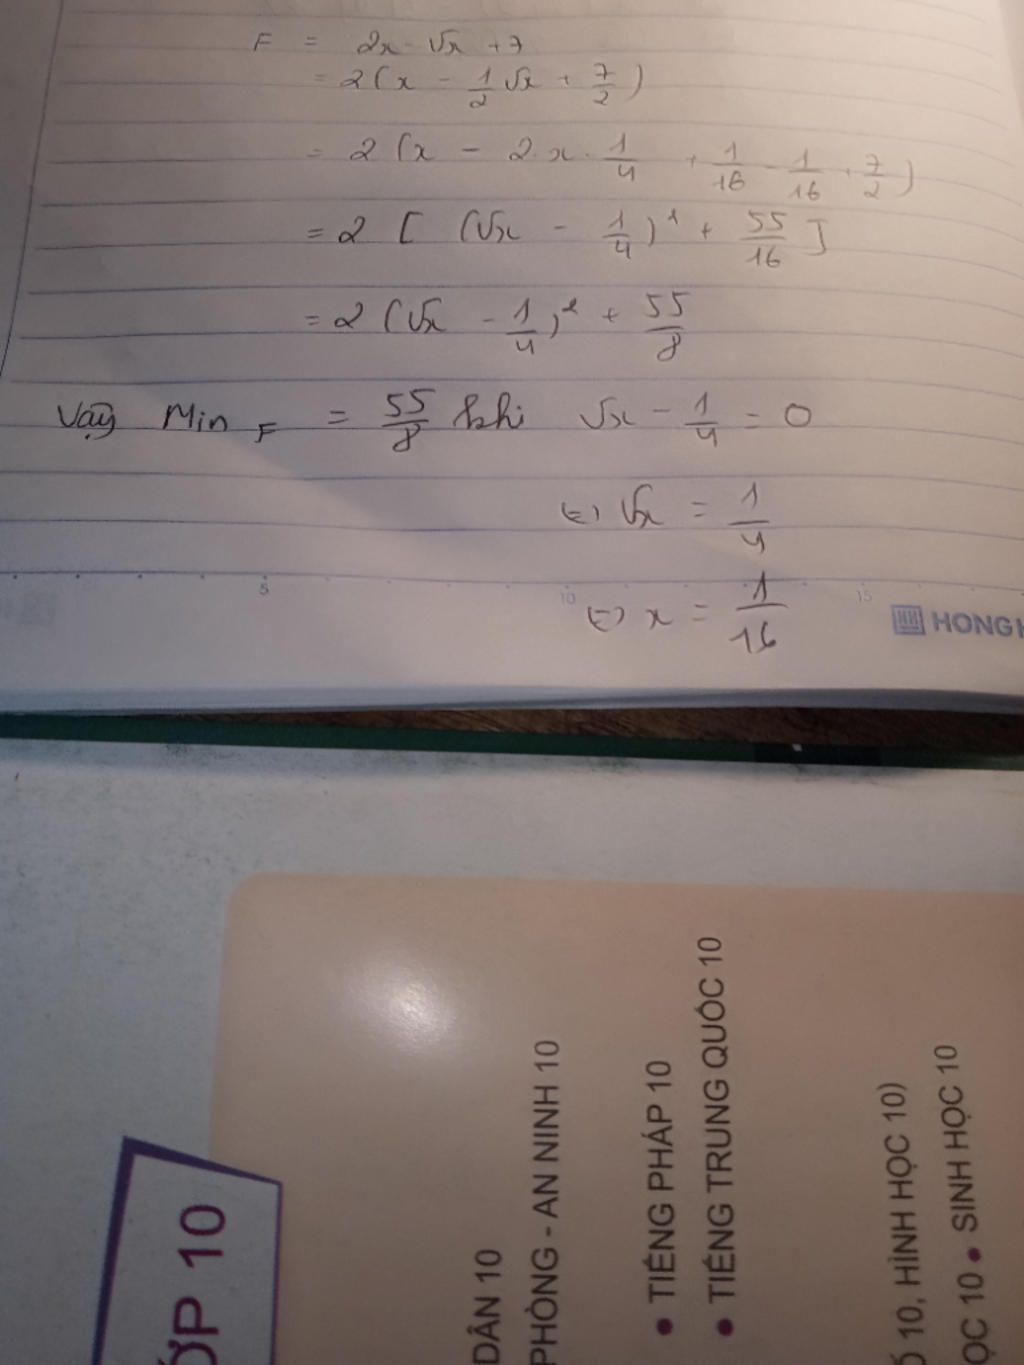 F = 2x - √x + 7
= 2(x - 1/2 √x + 7/2)
= 2(x - 2.x.1/4 + 1/16 - 1/16 + 7/2)
= 2[(√x - 1/4)² + 55/16]
= 2(√x - 1/4)² + 55/8
Vậy Min F = 55/8 khi √x - 1/4 = 0
⇔ √x = 1/4
⇔ x = 1/16
5 10 15
HONG
ỚP 10
DÂN 10
PHÒNG - AN NINH 10
• TIẾNG PHÁP 10
• TIẾNG TRUNG QUỐC 10
Ố 10, HÌNH HỌC 10)
ỌC 10 • SINH HỌC 10